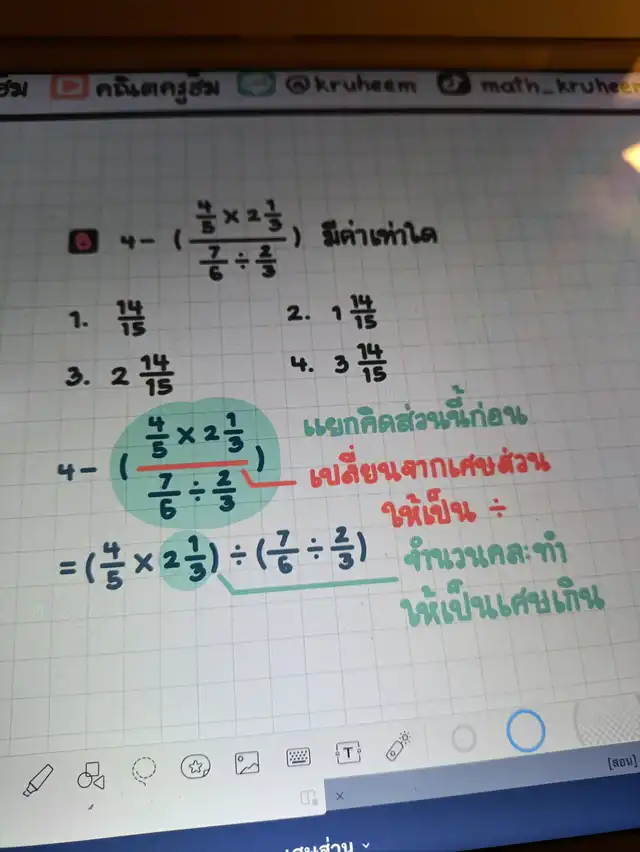 ฮีม คณิตครูฮีม @kruheem math_kruheem
8 4 - ( (4/5 × 2 1/3) / (7/6 ÷ 2/3) ) มีค่าเท่าใด
1. 14/15 2. 1 14/15
3. 2 14/15 4. 3 14/15
4 - ( (4/5 × 2 1/3) / (7/6 ÷ 2/3) ) แยกคิดส่วนนี้ก่อน
เปลี่ยนจากเศษส่วน
ให้เป็น ÷
= (4/5 × 2 1/3) ÷ (7/6 ÷ 2/3) จำนวนคละทำ
ให้เป็นเศษเกิน
T
[สอน]
×